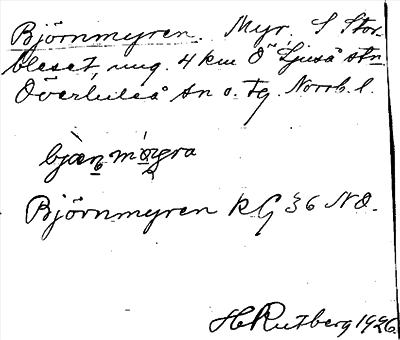 Björnmyren. Myr. S Stor-
bleset, ung. 4 km Ö Ljuså stn
Överluleå sn o. tg. Norrb. l.
Björnmyren K G 36 NO.
H Rutberg 1926.